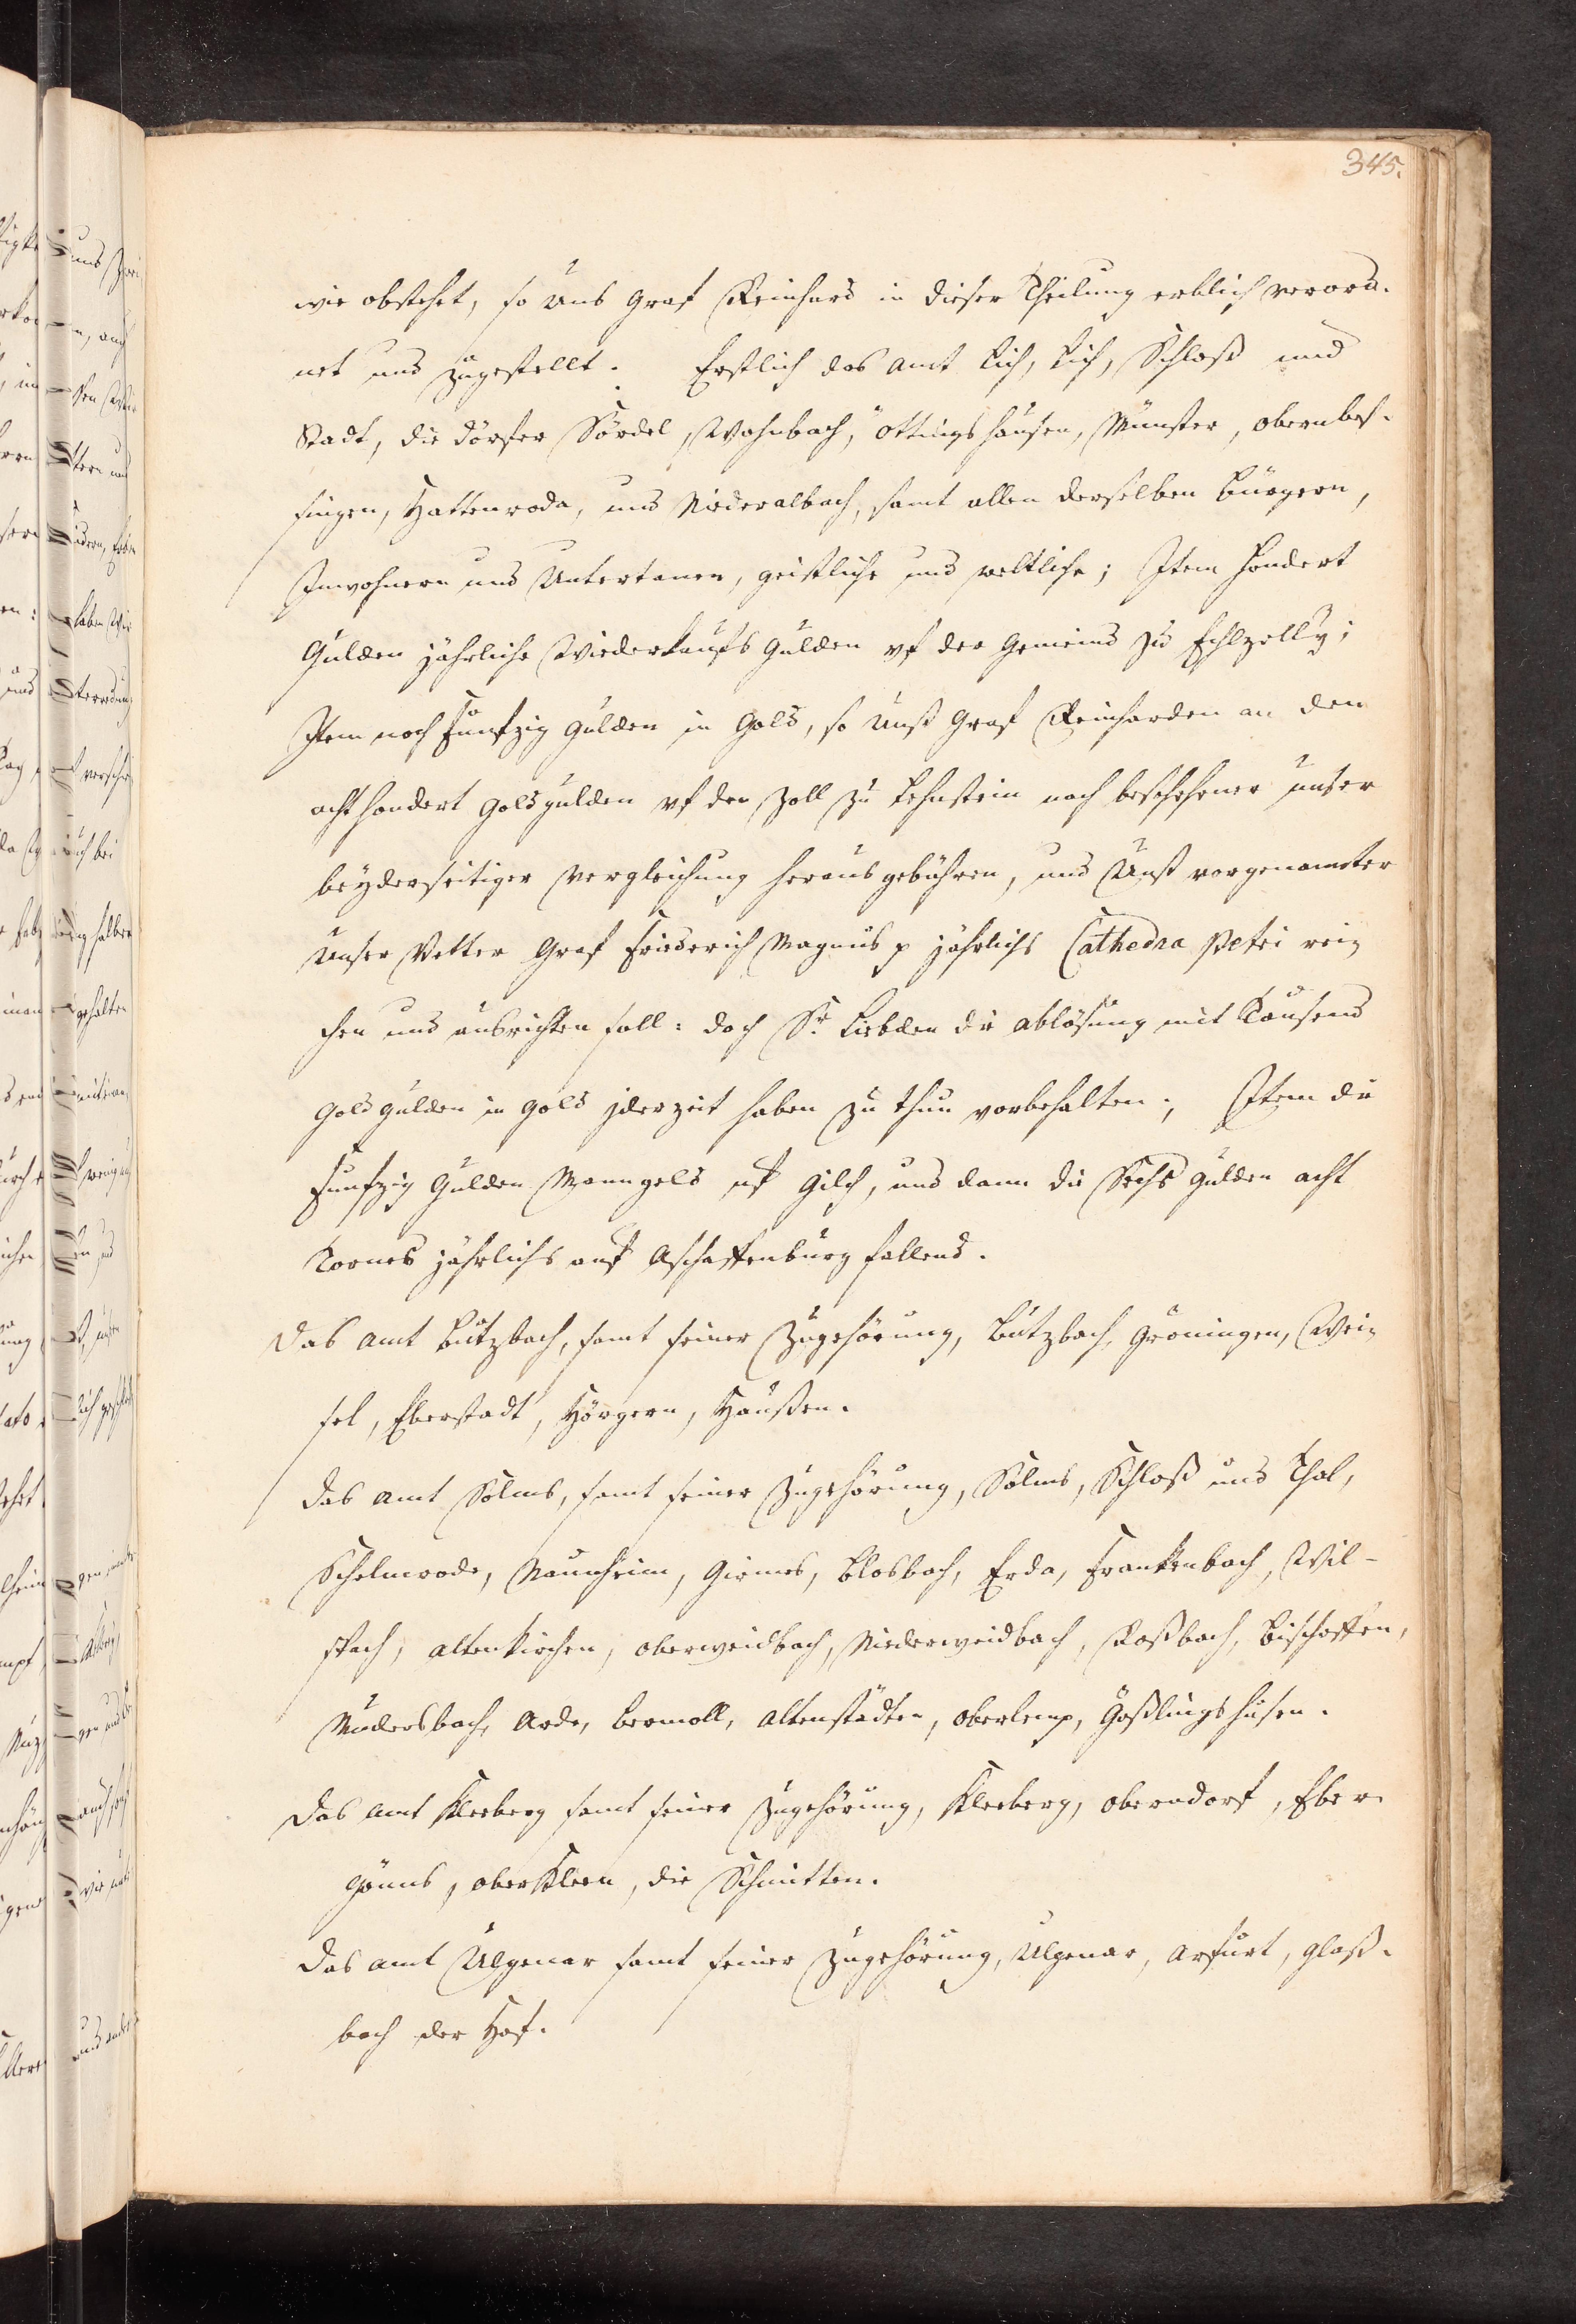 345.
wie obstehet, so Uns Graf Reinhard in dieser Theilung erblich verord-
net und zugestellt. Erstlich das Amt Lich, Lich, Schloß und
Stadt, die Dörfer Södel, Wohnbach, Ottingshausen, Münster, Obernbes-
singen, Hattenroda, und Niederalbach, samt allen derselben Bürgern,
Inwohnern und Untertanen, geistliche und weltliche; Item hondert
Gulden jährliche Wiederkaufs Gulden uf der Gemeind zu Echlzelly;
Item noch funfzig Gulden in Gold, so Unß Graf Reinharden an den
acht hondert Goldgulden uf den Zoll zu Lehnstein nach beschehener unser
beyderseitiger Vergleichung heraus gebühren, und Unß vorgenannter
Unser Vetter Graf Friederich Magnus p jährlichs Cathedra Petri rei-
chen und ausrichten soll: doch Sr. Liebden die Ablösung mit Tausend
Goldgulden in Gold jderzeit haben zu thun vorbehalten; Item die
funfzig Gulden Manngeld uf Gilch, und dann die Sechs Gulden acht
Tornes jährlichs auf Aschaffenburg fallend.
Das Amt Butzbach, samt seiner Zugehörung, Butzbach, Gröningen, Wei-
sel, Eberstadt, Hörgern, Haußen.
Das Amt Solms, samt seiner Zugehörung, Solms, Schloß und Thal,
Schelmrode, Naunheim, Girmes, Blasbach, Erda, Frankenbach, Wil-
spach, Altenkirchen, Oberweidbach, Niederweidbach, Roßbach, Bischoffen,
Mudersbach, Arde, Bermoll, Altenstädten, Oberlemp, Gößlingshusen.
Das Amt Kleeberg samt seiner Zugehörung, Kleeberg, Oberndorf, Eber-
gönns, Oberkleen, die Schmitten.
Das Amt Ulgenar samt seiner Zugehörung, Ulgenar, Arfurt, Glaß-
bach der Hof.